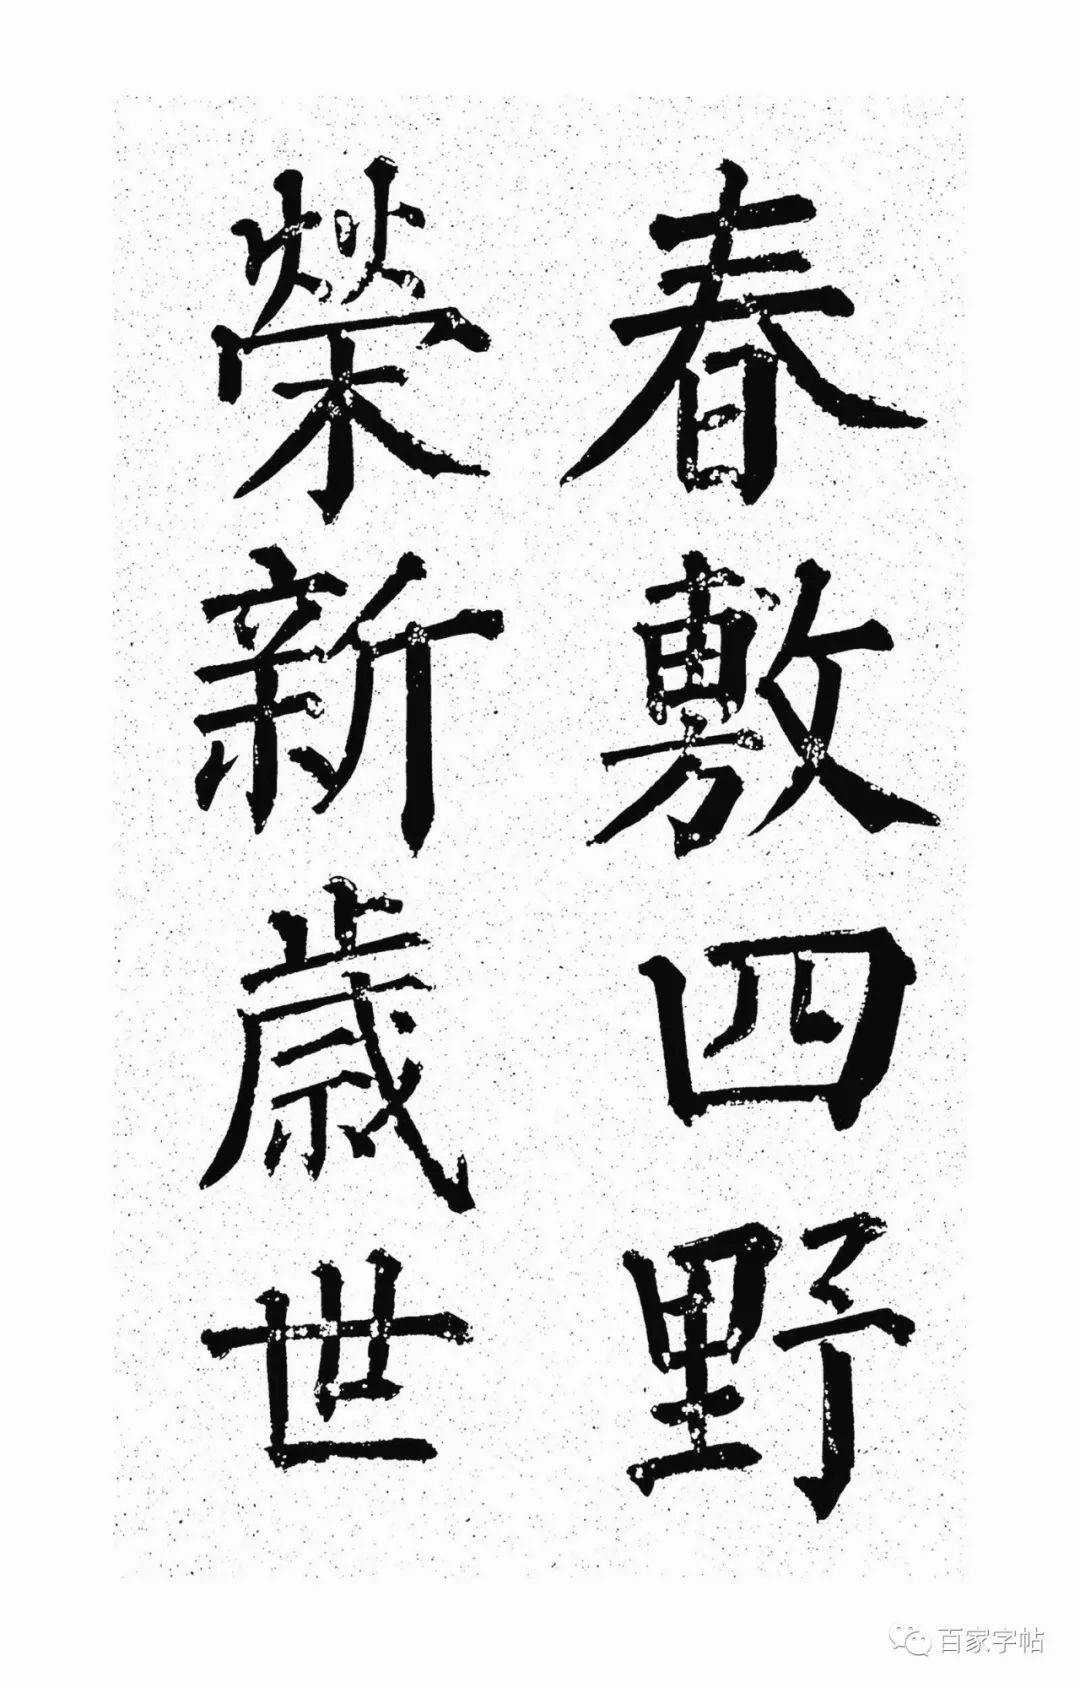 春敷四野
榮新歲世
百家字帖